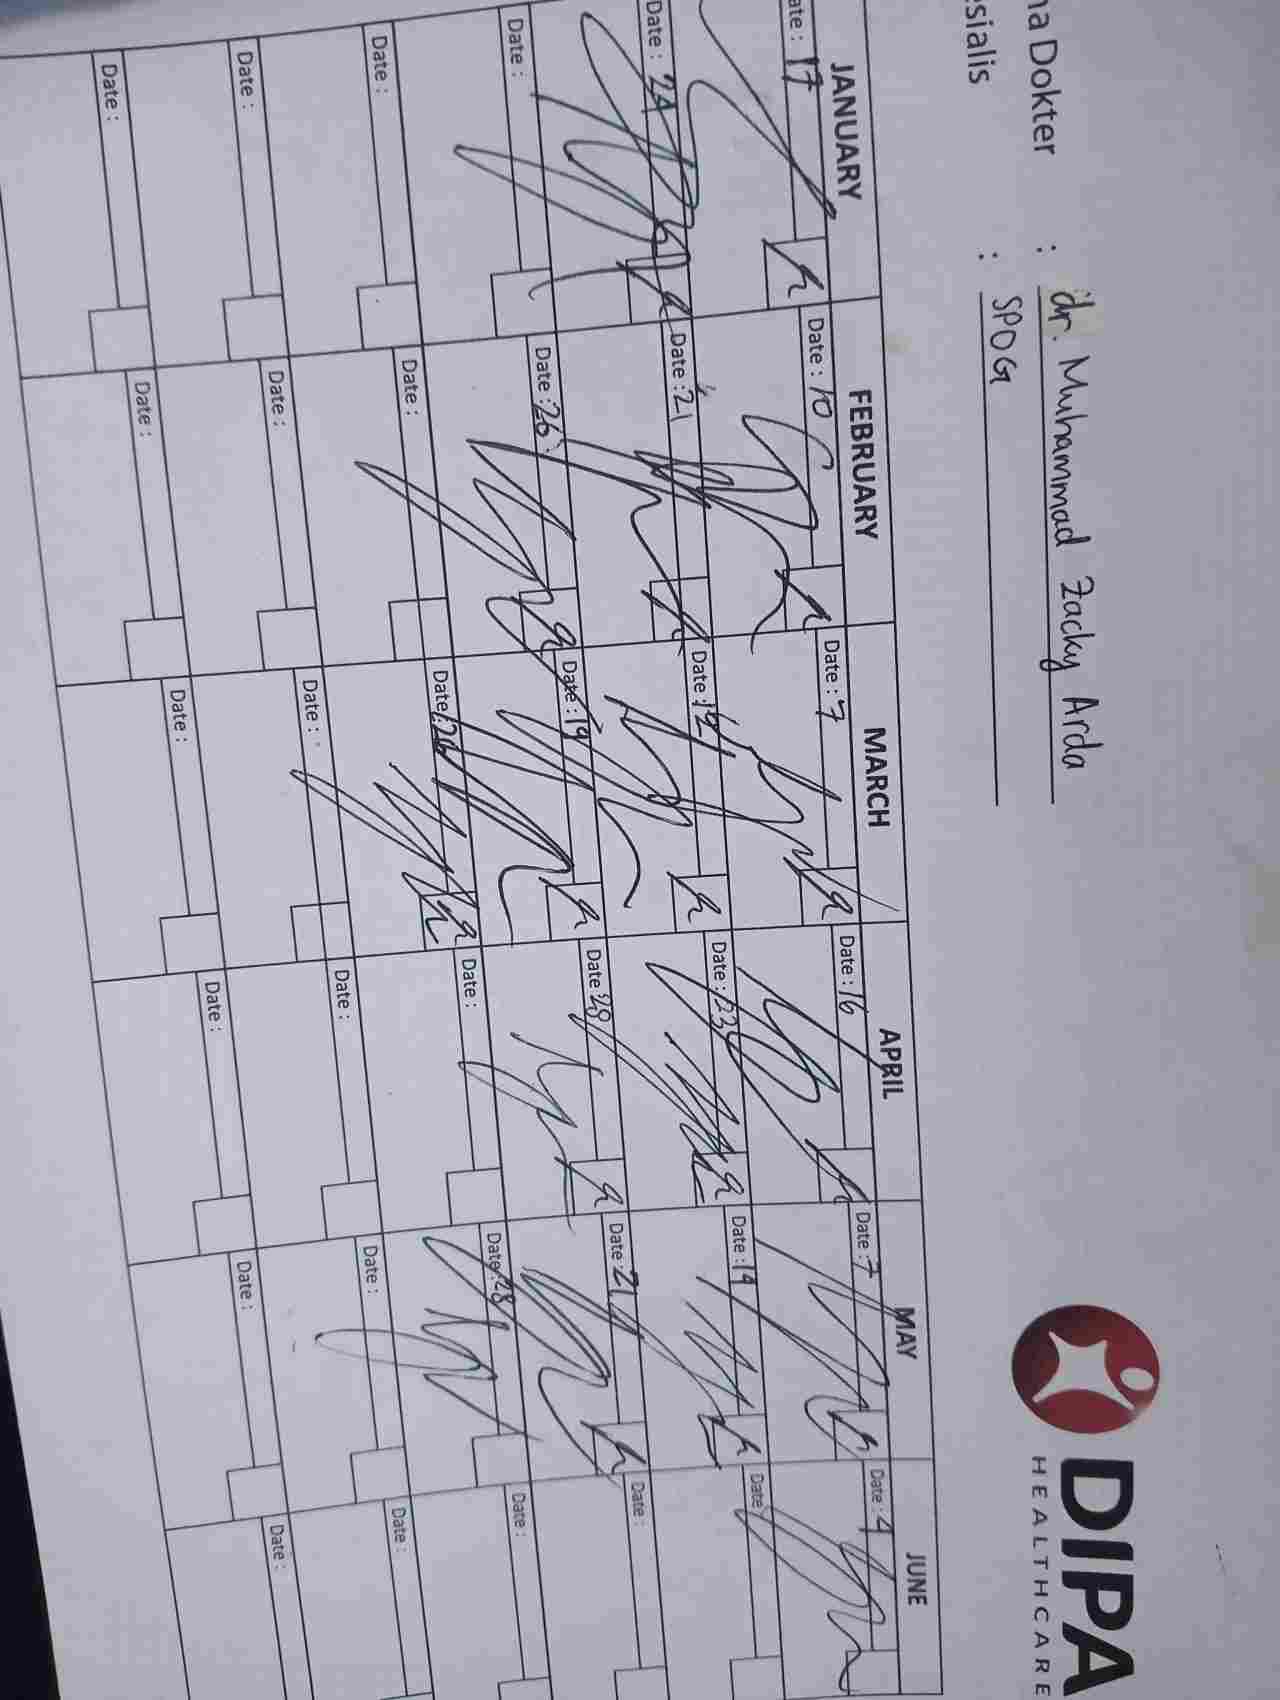 DIPA
HEALTHCARE
na Dokter : dr. Muhammad Zacky Arda
esialis : SPOG
JANUARY FEBRUARY MARCH APRIL MAY JUNE
ate : 17 Date : 10 Date : 7 Date : 16 Date : 7 Date : 4
Date : 24 Date : 21 Date : 12 Date : 23 Date : 19 Date
Date : Date : 26 Date : 19 Date : 28 Date : 21 Date :
Date : Date : Date : 26 Date : Date : 28 Date :
Date : Date : Date : Date : Date : Date :
Date : Date : Date : Date : Date : Date :